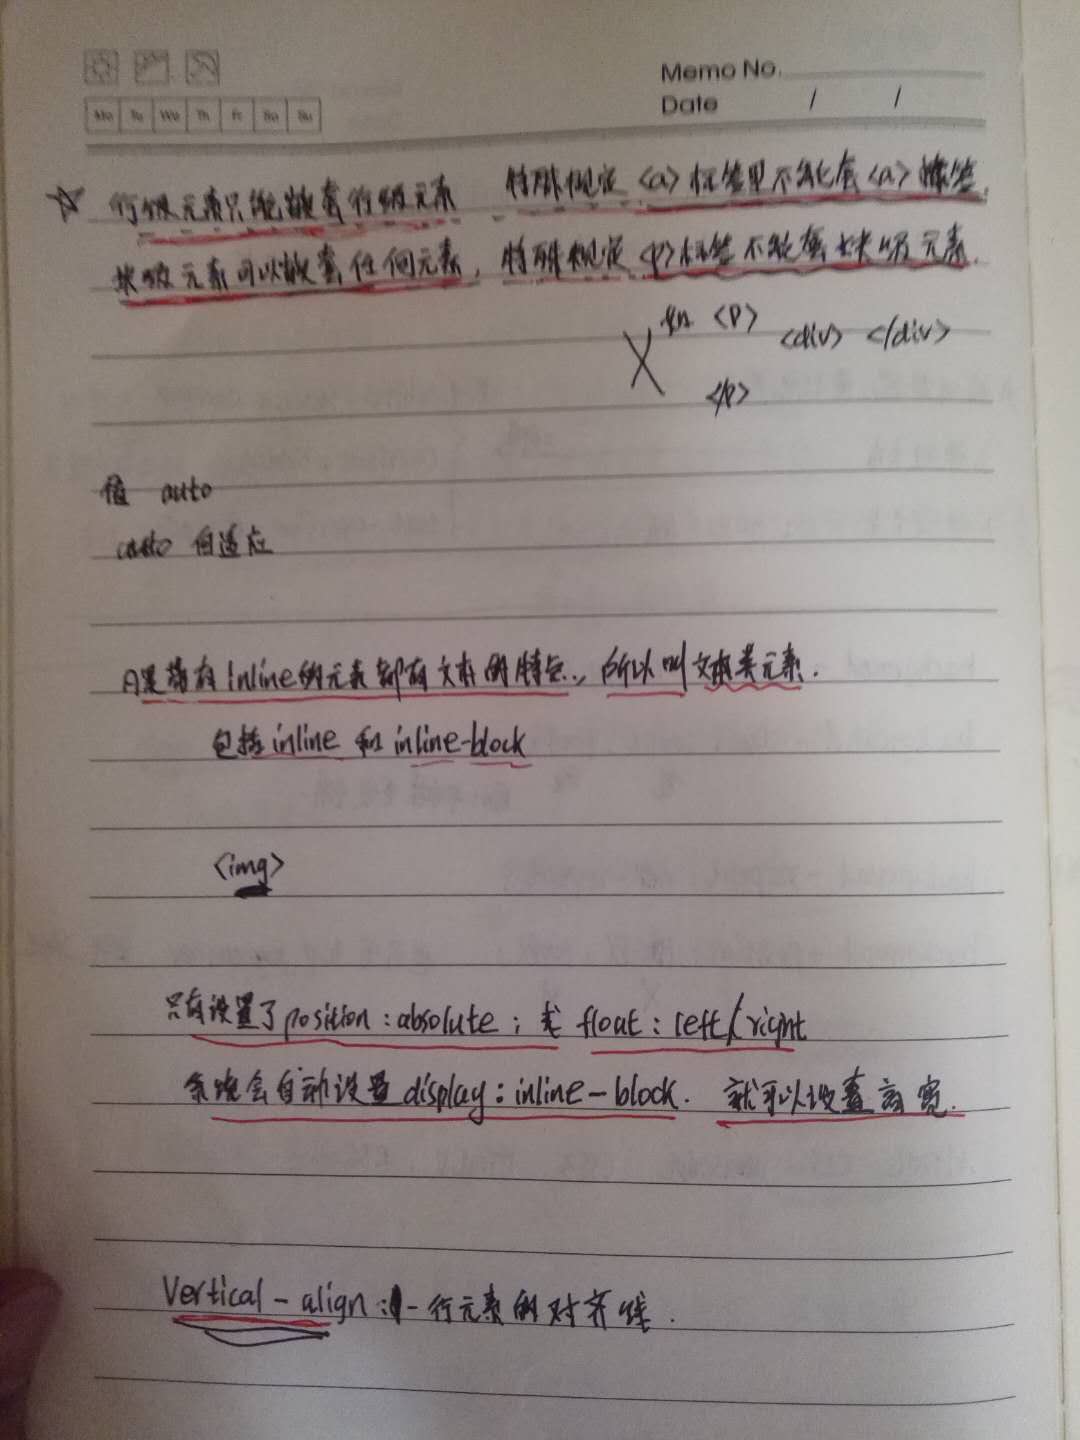 Memo No.
Date / /
Mo Tu We Th Fr Sa Su
☆ 行级元素只能嵌套行级元素 特殊规定 <a> 标签里不能套 <a> 标签.
块级元素可以嵌套任何元素, 特殊规定 <p>标签不能套块级元素.
X 如 <p> <div> </div>
</p>
值 auto
auto 自适应
凡是带有 inline的元素都有文本的特点., 所以叫文本类元素.
包括 inline 和 inline-block
<img>
只有设置了position : absolute ; 或 float : left/right
系统会自动设置 display : inline-block. 就可以设置高宽.
Vertical-align : 一行元素的对齐线.